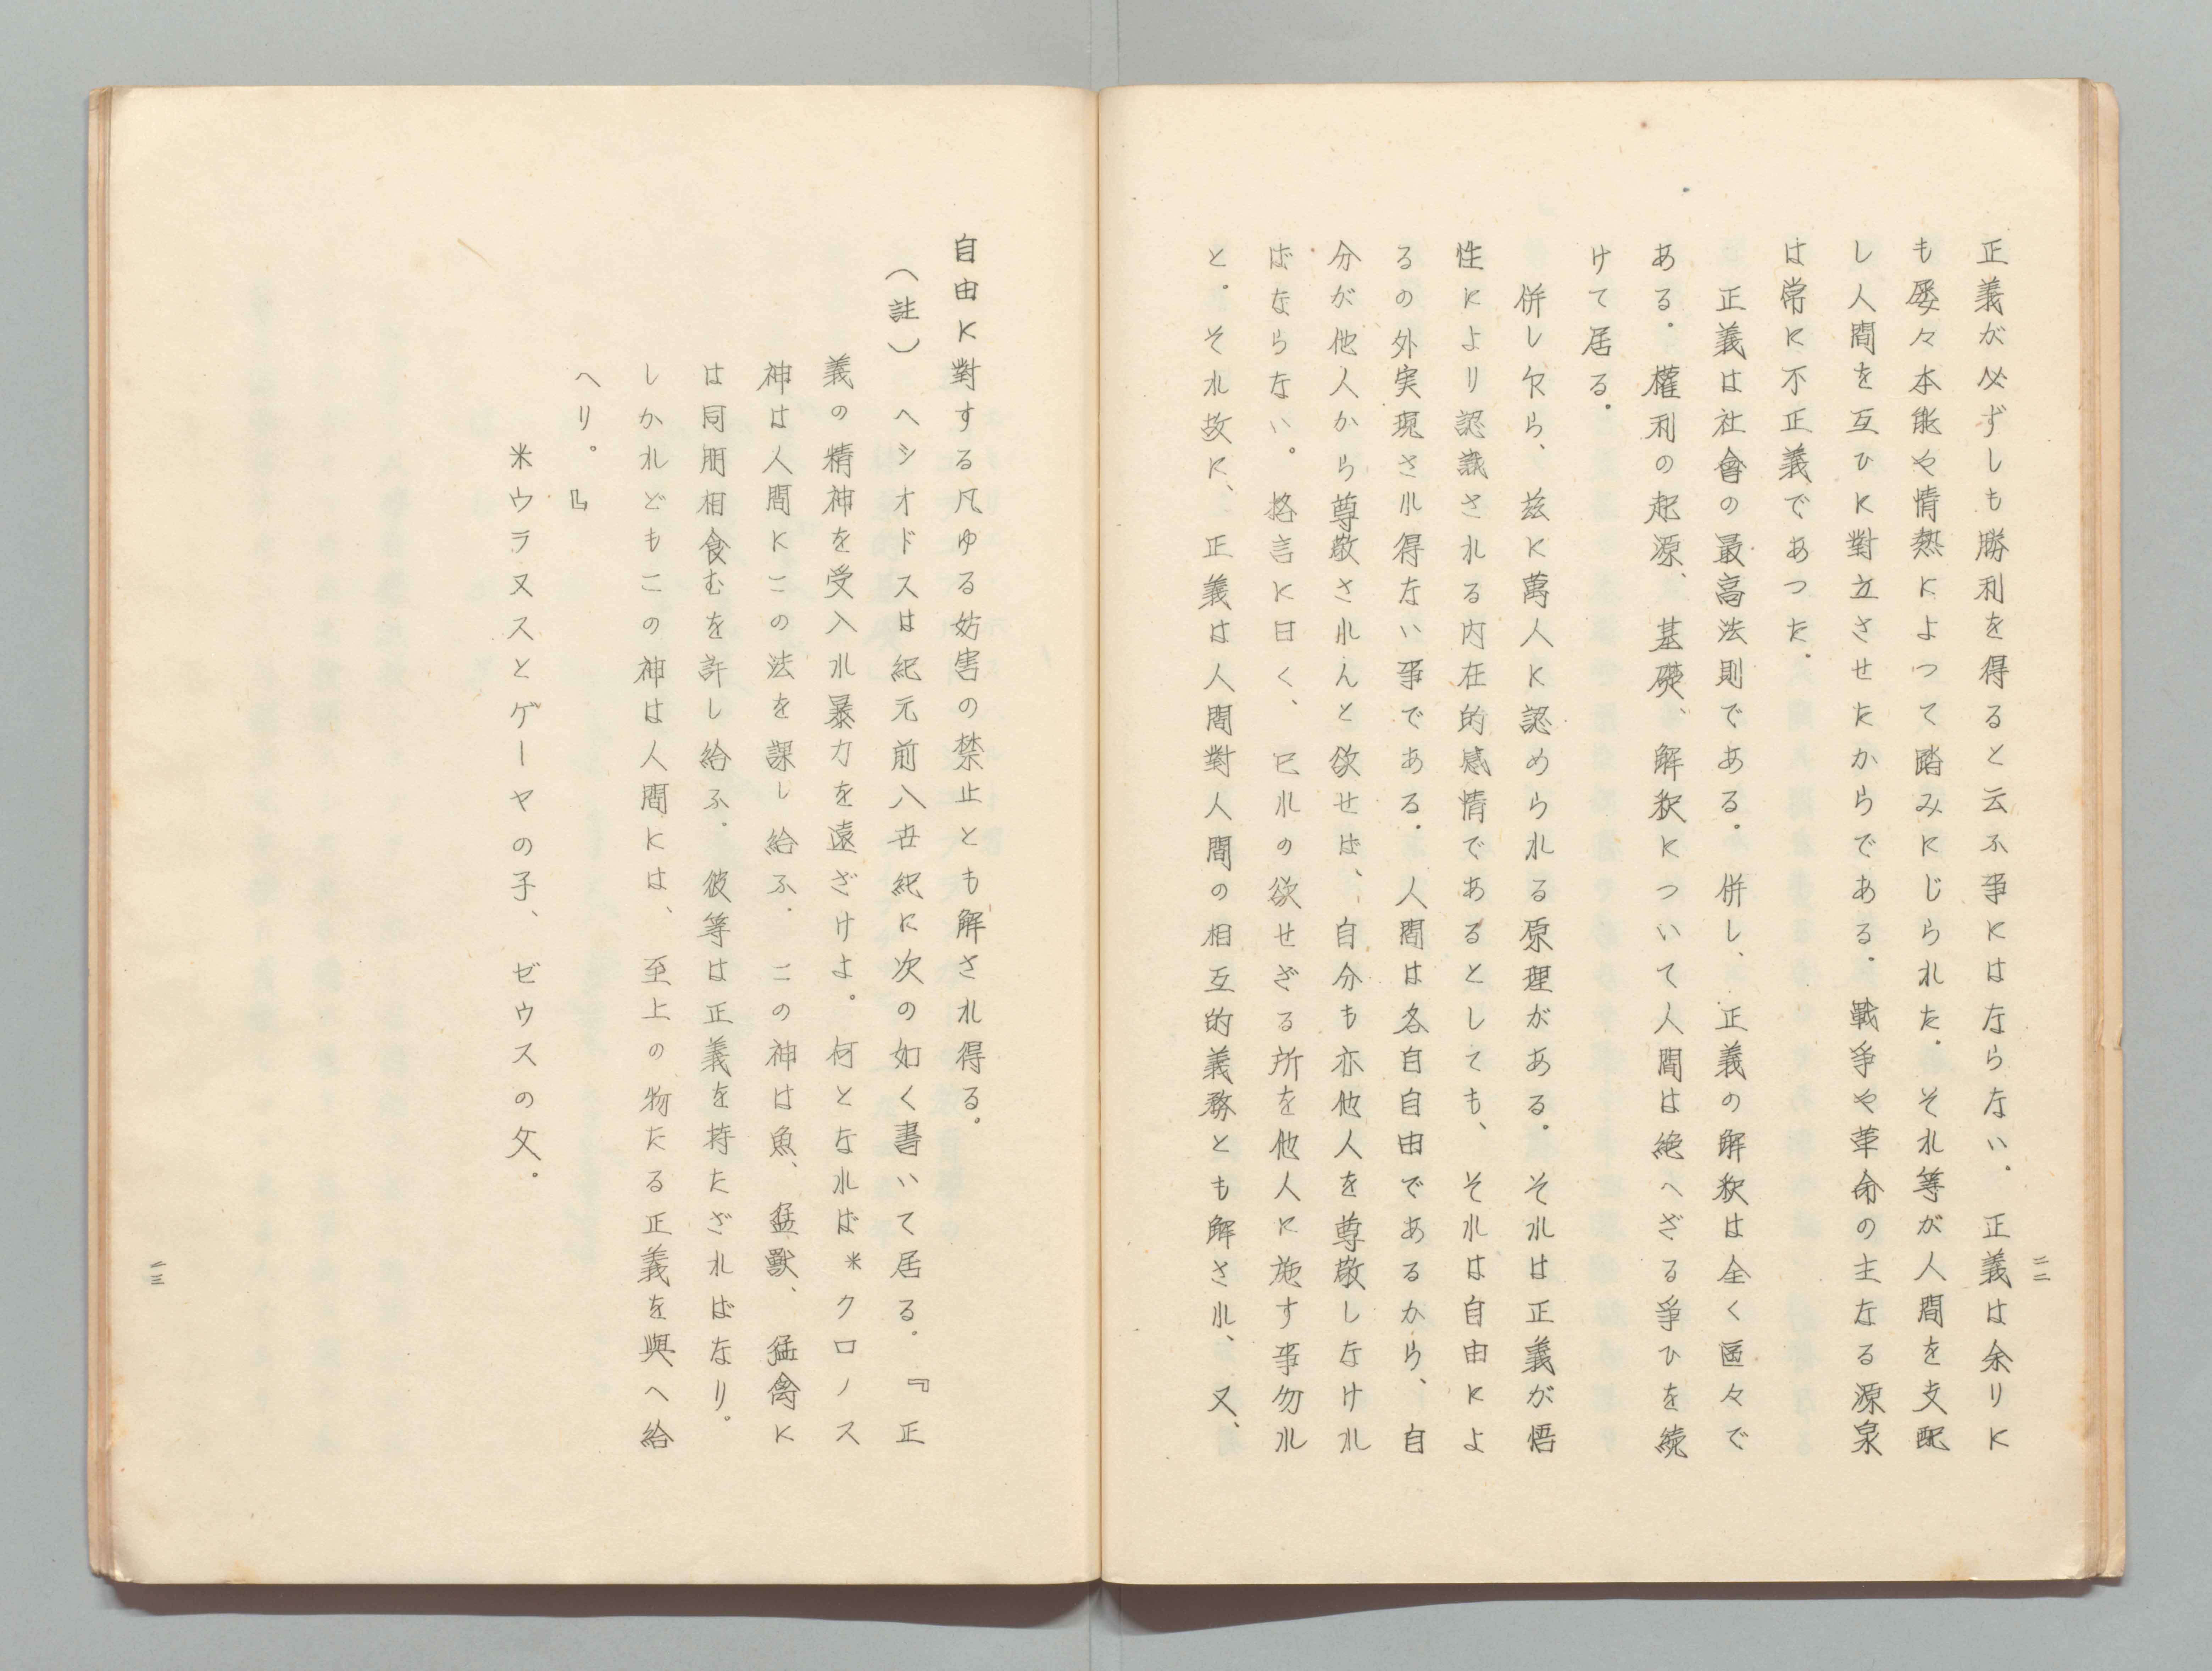 正義が必ずしも勝利を得ると云ふ事にはならない。正義は余りに
も屡々本能や情熱によつて踏みにじられた。それ等が人間を支配
し人間を互ひに對立させたからである。戰爭や革命の主なる源泉
は常に不正義であつた。
正義は社會の最高法則である。併し、正義の解釈は全く區々で
ある。權利の起源、基礎、解釈について人間は絶へざる爭ひを続
けて居る。
併し乍ら、茲に萬人に認められる原理がある。それは正義が悟
性により認識される内在的感情であるとしても、それは自由によ
るの外実現され得ない事である。人間は各自自由であるから、自
分が他人から尊敬されんと欲せば、自分も亦他人を尊敬しなけれ
ばならない。格言に曰く、已れの欲せざる所を他人に施す事勿れ
と。それ故に、正義は人間對人間の相互的義務とも解され、又、
二二
自由に對する凡ゆる妨害の禁止とも解され得る。
（註）ヘシオドスは紀元前八世紀に次の如く書いて居る。『正
義の精神を受入れ暴力を遠ざけよ。何となれば＊クロノス
神は人間にこの法を課し給ふ。この神は魚、猛獸、猛禽に
は同朋相食むを許し給ふ。彼等は正義を持たざればなり。
しかれどもこの神は人間には、至上の物たる正義を與へ給
へり。』
＊ウラヌスとゲーヤの子、ゼウスの父。
二三